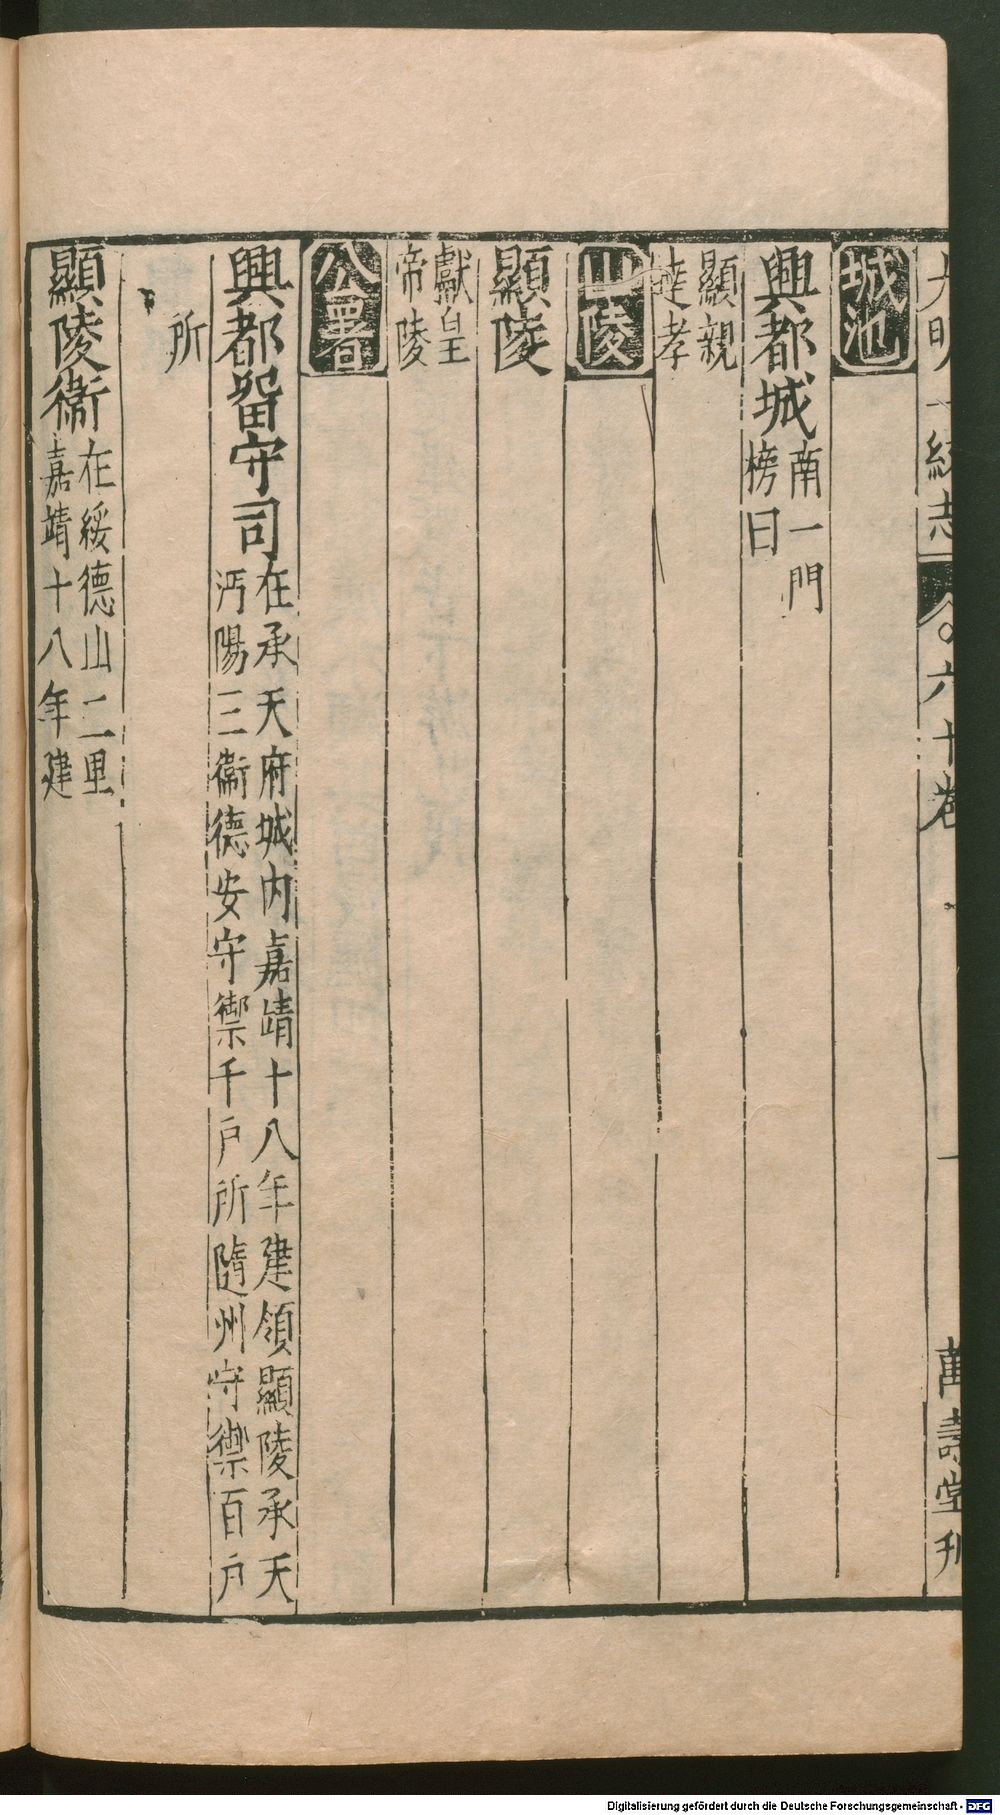 大明一統志 卷六十卷 一 萬壽堂刊
城池
興都城 南一門
榜曰
顯親
達孝
山陵
顯陵
獻皇
帝陵
公署
興都留守司 在承天府城内嘉靖十八年建領顯陵承天
沔陽三衞德安守禦千戶所隨州守禦百戶
所
顯陵衞 在綏德山二里
嘉靖十八年建
Digitalisierung gefördert durch die Deutsche Forschungsgemeinschaft - DFG